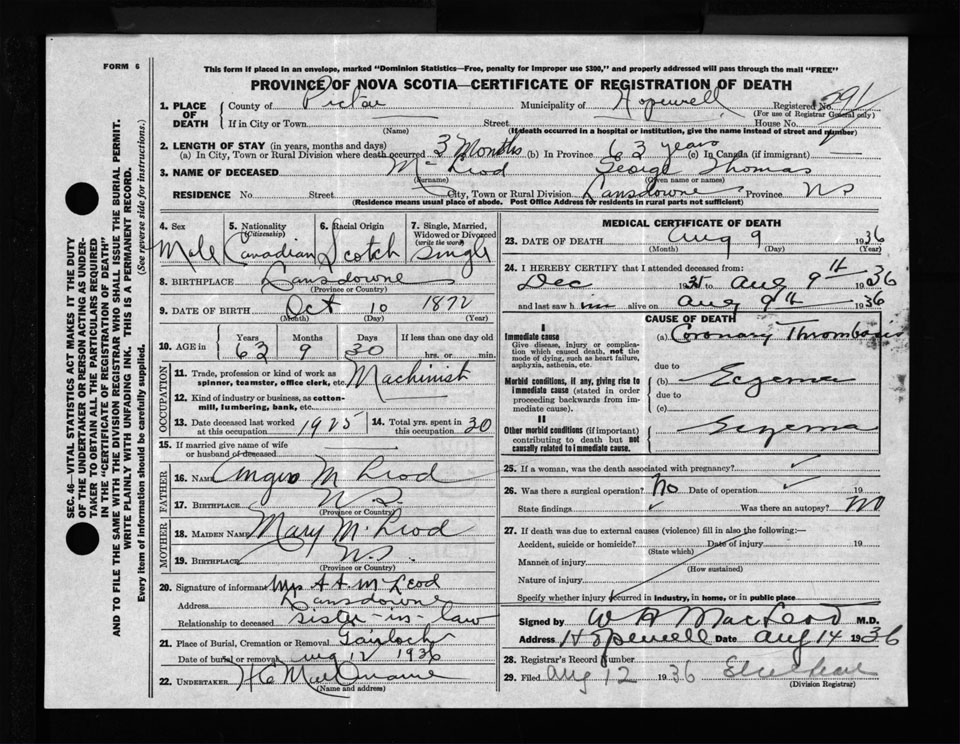 FORM 6
This form if placed in an envelope, marked "Dominion Statistics—Free, penalty for improper use $300," and properly addressed will pass through the mail "FREE"
PROVINCE OF NOVA SCOTIA—CERTIFICATE OF REGISTRATION OF DEATH
1. PLACE OF DEATH County of Pictou Municipality of Hopewell Registered No. 291
(For use of Registrar General only)
If in City or Town Street House No.
(Name) (If death occurred in a hospital or institution, give the name instead of street and number)
2. LENGTH OF STAY (in years, months and days)
(a) In City, Town or Rural Division where death occurred 3 Months (b) In Province 63 years (c) In Canada (if immigrant) —
3. NAME OF DECEASED McLeod George Thomas
(Surname) (Given name or names)
RESIDENCE No. Street City, Town or Rural Division Lansdowne Province NS
(Residence means usual place of abode. Post Office Address for residents in rural parts not sufficient)
4. Sex 5. Nationality (Citizenship) 6. Racial Origin 7. Single, Married, Widowed or Divorced (write the word)
Male Canadian Scotch Single
8. BIRTHPLACE Lansdowne
(Province or Country)
9. DATE OF BIRTH Oct 10 1872
(Month) (Day) (Year)
10. AGE in Years Months Days If less than one day old
63 9 30 hrs. or min.
OCCUPATION
11. Trade, profession or kind of work as spinner, teamster, office clerk, etc. Machinist
12. Kind of industry or business, as cotton-mill, lumbering, bank, etc.
13. Date deceased last worked at this occupation 1925 14. Total yrs. spent in this occupation 30
15. If married give name of wife or husband of deceased
FATHER
16. NAME Angus McLeod
17. BIRTHPLACE N.S.
(Province or Country)
MOTHER
18. MAIDEN NAME Mary McLeod
19. BIRTHPLACE N.S.
(Province or Country)
20. Signature of informant Mrs A A McLeod
Address Lansdowne
Relationship to deceased sister-in-law
21. Place of Burial, Cremation or Removal Gairloch
Date of burial or removal Aug 12 1936
22. UNDERTAKER
(Name and address)
MEDICAL CERTIFICATE OF DEATH
23. DATE OF DEATH Aug 9 1936
(Month) (Day) (Year)
24. I HEREBY CERTIFY that I attended deceased from:
Dec 1935 to Aug 9th 1936
and last saw him alive on Aug 9th 1936
CAUSE OF DEATH
I
Immediate cause
Give disease, injury or complication which caused death, not the mode of dying, such as heart failure, asphyxia, asthenia, etc.
(a) Coronary Thrombosis
due to
Morbid conditions, if any, giving rise to immediate cause (stated in order proceeding backwards from immediate cause).
(b) Eczema
due to
(c)
II
Other morbid conditions (if important) contributing to death but not causally related to immediate cause.
Eczema
25. If a woman, was the death associated with pregnancy?
26. Was there a surgical operation? No Date of operation 19
State findings Was there an autopsy? No
27. If death was due to external causes (violence) fill in also the following:—
Accident, suicide or homicide? Date of injury 19
(State which)
Manner of injury
(How sustained)
Nature of injury
Specify whether injury occurred in industry, in home, or in public place
Signed by W A MacLeod M.D.
Address Hopewell Date Aug 14 1936
28. Registrar's Record Number
29. Filed Aug 12 1936
(Division Registrar)
SEC. 46—VITAL STATISTICS ACT MAKES IT THE DUTY
OF THE UNDERTAKER OR PERSON ACTING AS UNDER-
TAKER TO OBTAIN ALL THE PARTICULARS REQUIRED
IN THE "CERTIFICATE OF REGISTRATION OF DEATH"
AND TO FILE THE SAME WITH THE DIVISION REGISTRAR WHO SHALL ISSUE THE BURIAL PERMIT.
WRITE PLAINLY WITH UNFADING INK. THIS IS A PERMANENT RECORD.
Every item of information should be carefully supplied. (See reverse side for instructions.)